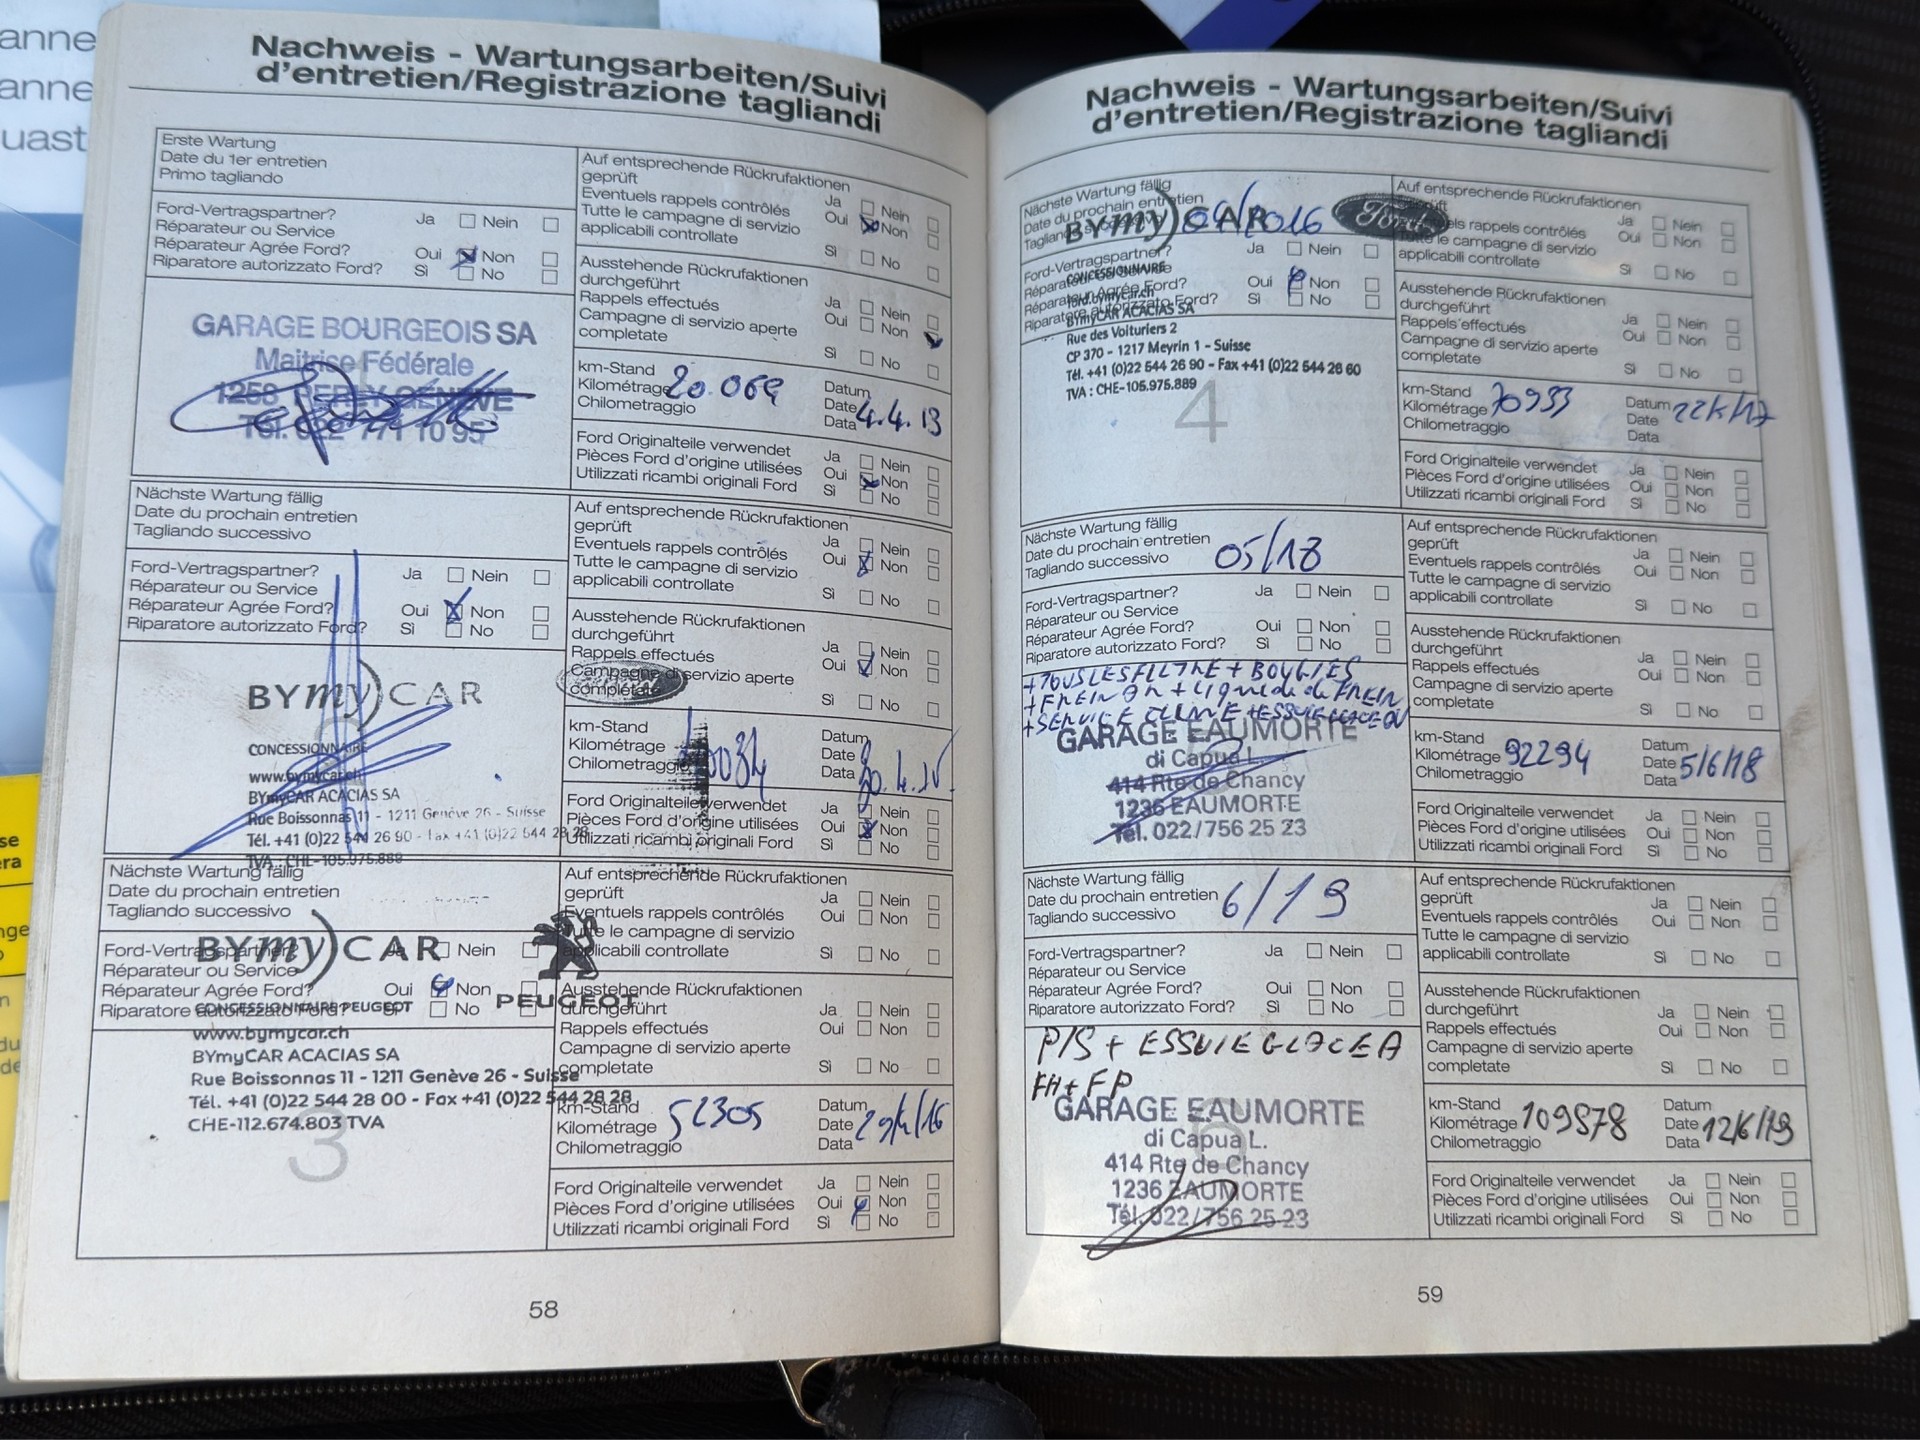 anne
anne
uast
Nachweis - Wartungsarbeiten/Suivi
d'entretien/Registrazione tagliandi
Erste Wartung
Date du 1er entretien
Primo tagliando
Ford-Vertragspartner?
Réparateur ou Service
Réparateur Agrée Ford?
Riparatore autorizzato Ford?
Ja Nein
Oui Non
Sì No
GARAGE BOURGEOIS SA
Maitrise Fédérale
1258 PERLY-GENEVE
Tél. 022 771 10 95
Auf entsprechende Rückrufaktionen
geprüft
Eventuels rappels contrôlés
Tutte le campagne di servizio
applicabili controllate
Ja Nein
Oui Non
Sì No
Ausstehende Rückrufaktionen
durchgeführt
Rappels effectués
Campagne di servizio aperte
completate
Ja Nein
Oui Non
Sì No
km-Stand
Kilométrage 20.069
Chilometraggio
Datum
Date 4.4.13
Data
Ford Originalteile verwendet
Pièces Ford d'origine utilisées
Utilizzati ricambi originali Ford
Ja Nein
Oui Non
Sì No
Nächste Wartung fällig
Date du prochain entretien
Tagliando successivo
Ford-Vertragspartner?
Réparateur ou Service
Réparateur Agrée Ford?
Riparatore autorizzato Ford?
Ja Nein
Oui Non
Sì No
BYmy)CAR
CONCESSIONNAIRE
www.bymycar.ch
BYmyCAR ACACIAS SA
Rue Boissonnas 11 - 1211 Genève 26 - Suisse
Tél. +41 (0)22 544 26 90 - Fax +41 (0)22 544 28 28
TVA : CHE-105.975.889
Auf entsprechende Rückrufaktionen
geprüft
Eventuels rappels contrôlés
Tutte le campagne di servizio
applicabili controllate
Ja Nein
Oui Non
Sì No
Ausstehende Rückrufaktionen
durchgeführt
Rappels effectués
Campagne di servizio aperte
completate
Ja Nein
Oui Non
Sì No
km-Stand
Kilométrage
Chilometraggio
Datum
Date
Data
Ford Originalteile verwendet
Pièces Ford d'origine utilisées
Utilizzati ricambi originali Ford
Ja Nein
Oui Non
Sì No
Nächste Wartung fällig
Date du prochain entretien
Tagliando successivo
Ford-Vertragspartner?
Réparateur ou Service
Réparateur Agrée Ford?
Riparatore autorizzato Ford?
Ja Nein
Oui Non
Sì No
BYmy)CAR
CONCESSIONNAIRE PEUGEOT
PEUGEOT
www.bymycar.ch
BYmyCAR ACACIAS SA
Rue Boissonnas 11 - 1211 Genève 26 - Suisse
Tél. +41 (0)22 544 28 00 - Fax +41 (0)22 544 28 28
CHE-112.674.803 TVA
3
Auf entsprechende Rückrufaktionen
Eventuels rappels contrôlés
Tutte le campagne di servizio
applicabili controllate
Ja Nein
Oui Non
Sì No
Ausstehende Rückrufaktionen
durchgeführt
Rappels effectués
Campagne di servizio aperte
completate
Ja Nein
Oui Non
Sì No
km-Stand
Kilométrage 52305
Chilometraggio
Datum
Date 29/4/16
Data
Ford Originalteile verwendet
Pièces Ford d'origine utilisées
Utilizzati ricambi originali Ford
Ja Nein
Oui Non
Sì No
58
Nachweis - Wartungsarbeiten/Suivi
d'entretien/Registrazione tagliandi
Nächste Wartung fällig
Date du prochain entretien
04/2016
BYmy)CAR
Ford
Ford-Vertragspartner?
Réparateur Agrée Ford?
Riparatore autorizzato Ford?
Ja Nein
Oui Non
Sì No
CONCESSIONNAIRE
ford.bymycar.ch
BYmyCAR ACACIAS SA
Rue des Voituriers 2
CP 370 - 1217 Meyrin 1 - Suisse
Tél. +41 (0)22 544 26 90 - Fax +41 (0)22 544 26 60
TVA : CHE-105.975.889
4
Auf entsprechende Rückrufaktionen
rappels contrôlés
Tutte le campagne di servizio
applicabili controllate
Ja Nein
Oui Non
Sì No
Ausstehende Rückrufaktionen
durchgeführt
Rappels effectués
Campagne di servizio aperte
completate
Ja Nein
Oui Non
Sì No
km-Stand
Kilométrage 70933
Chilometraggio
Datum
Date
Data
Ford Originalteile verwendet
Pièces Ford d'origine utilisées
Utilizzati ricambi originali Ford
Ja Nein
Oui Non
Sì No
Nächste Wartung fällig
Date du prochain entretien
Tagliando successivo
05/18
Ford-Vertragspartner?
Réparateur ou Service
Réparateur Agrée Ford?
Riparatore autorizzato Ford?
Ja Nein
Oui Non
Sì No
+ TOUS LES FILTRE + BOUGIES
+ FREIN + LIQUIDE de FREIN
+ SERVICE CLIME + ESSUIE GLACE
GARAGE EAUMORTE
di Capua L.
414 Rte de Chancy
1236 EAUMORTE
Tél. 022/756 25 23
Auf entsprechende Rückrufaktionen
geprüft
Eventuels rappels contrôlés
Tutte le campagne di servizio
applicabili controllate
Ja Nein
Oui Non
Sì No
Ausstehende Rückrufaktionen
durchgeführt
Rappels effectués
Campagne di servizio aperte
completate
Ja Nein
Oui Non
Sì No
km-Stand
Kilométrage 92294
Chilometraggio
Datum
Date 5/6/18
Data
Ford Originalteile verwendet
Pièces Ford d'origine utilisées
Utilizzati ricambi originali Ford
Ja Nein
Oui Non
Sì No
Nächste Wartung fällig
Date du prochain entretien
Tagliando successivo
6/19
Ford-Vertragspartner?
Réparateur ou Service
Réparateur Agrée Ford?
Riparatore autorizzato Ford?
Ja Nein
Oui Non
Sì No
P/S + ESSUIE GLACE A
FH + FP
GARAGE EAUMORTE
di Capua L.
414 Rte de Chancy
1236 EAUMORTE
Tél. 022/756 25 23
Auf entsprechende Rückrufaktionen
geprüft
Eventuels rappels contrôlés
Tutte le campagne di servizio
applicabili controllate
Ja Nein
Oui Non
Sì No
Ausstehende Rückrufaktionen
durchgeführt
Rappels effectués
Campagne di servizio aperte
completate
Ja Nein
Oui Non
Sì No
km-Stand
Kilométrage 109878
Chilometraggio
Datum
Date 12/6/19
Data
Ford Originalteile verwendet
Pièces Ford d'origine utilisées
Utilizzati ricambi originali Ford
Ja Nein
Oui Non
Sì No
59